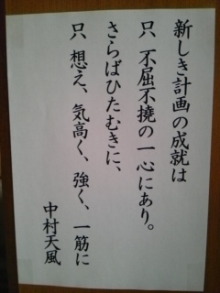 新しき計画の成就は
只 不屈不撓の一心にあり。
さらばひたむきに、
只 想え、気高く、強く、一筋に
中村天風